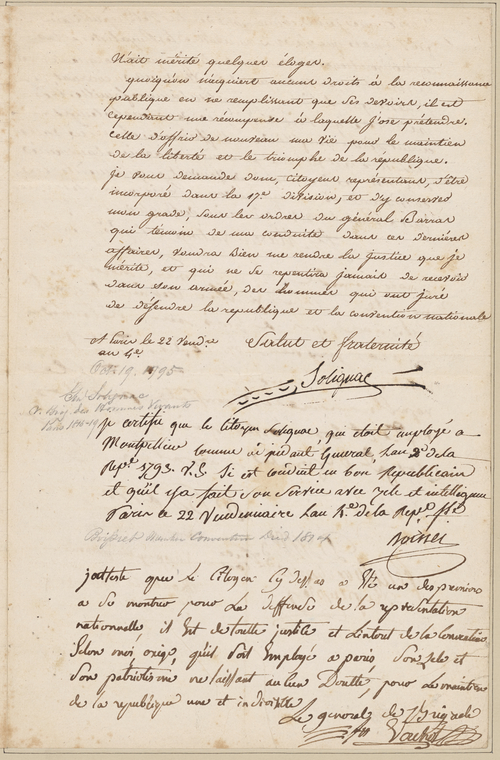 N'ait mérité quelques éloges.
quoiqu'on n'acquiert aucuns droits à la reconnaissance
publique en ne remplissant que ses devoirs, il est
cependant une récompense à laquelle J'ose prétendre.
Celle d'offrir de nouveau ma vie pour le maintien
de la liberté et le triomphe de la république.
Je vous demande donc, citoyen représentant, d'être
incorporé dans la 17e division, et d'y conserver
mon grade, sous les ordres du général Barras
qui témoin de ma conduite dans ces dernières
affaires, voudra bien me rendre la Justice que je
mérite, et qui ne se repentira jamais de recevoir
dans son armée, des hommes qui ont juré
de défendre la republique et la convention nationale
A Paris le 22 vendre
an 4e
Salut et fraternité
Oct. 19. 1795
Solignac
je certifie que le citoyen Solignac, qui étoit employé a
Montpellier comme adjudant General, Lan 2e de la
Repe. 1793. V.S. Si est conduit en bon Republicain
et qu'il y a fait son service avec zele et intelligence
Paris le 22 Vendemiaire Lan 4e. de la Repe. ffse
Voisses
Member Convention Died
jatteste que le Citoyen Cy dessus a Eté un des premiers
a se montrer pour La deffense de la représentation
nationnelle, il Est de toutte justice et de la Convention
Selon moi quil soit Employé a paris, Son Zele et
Son patriotisme ne laissant aucun Doutte, pour le maintien
de la republique une et indivisible
Le general de Brigade
Vachot